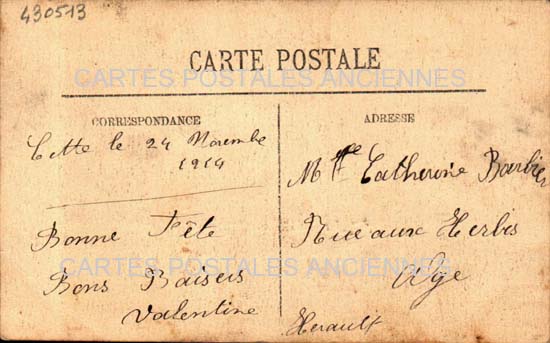 430513
CARTE POSTALE
CARTES POSTALES ANCIENNES
CORRESPONDANCE
Cette le 24 Novembre
1914
Bonne Fête
Bons Baisers
Valentine
ADRESSE
Mlle Catherine Barbier
Rue aux Herbes
Hérault
CARTES POSTALES ANCIENNES